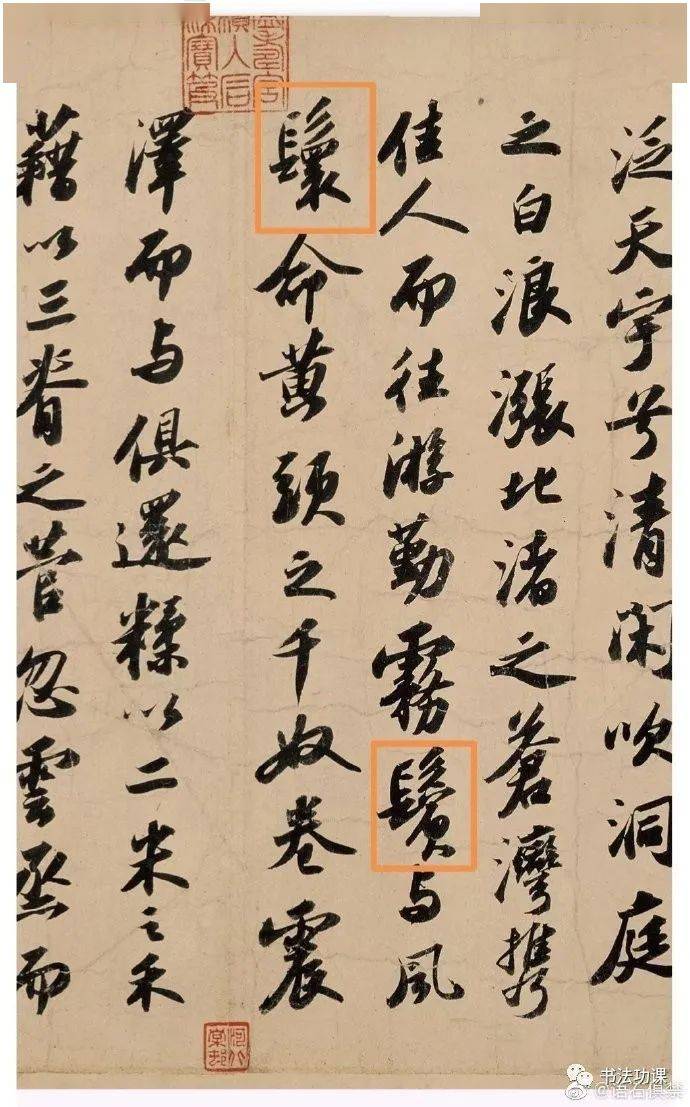 泛天宇兮清閑吹洞庭
之白浪漲北渚之蒼灣攜
佳人而往游勤霧鬢与風
鬟命黄頭之千奴卷震
澤而与俱還糅以二米之禾
藉以三脊之菅忽雲烝而
书法功课
@语石俱禁